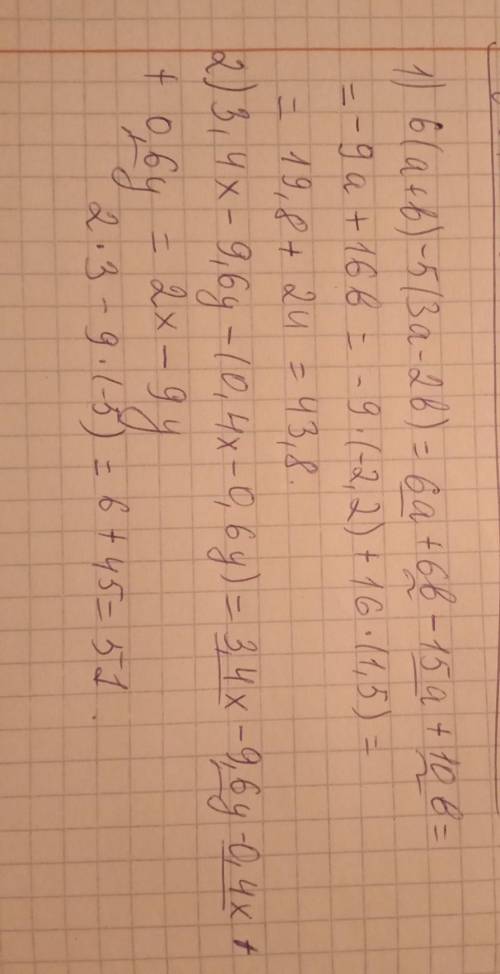 1) 6(a+b)-5(3a-2b)= 6a+6b-15a+10b=
= -9a+16b = -9·(-2,2)+16·(1,5)=
= 19,8+24=43,8.
2) 3,4x-9,6y-(0,4x-0,6y)= 3,4x-9,6y-0,4x+
+ 0,6y = 2x-9y
2·3-9·(-5)=6+45=51.